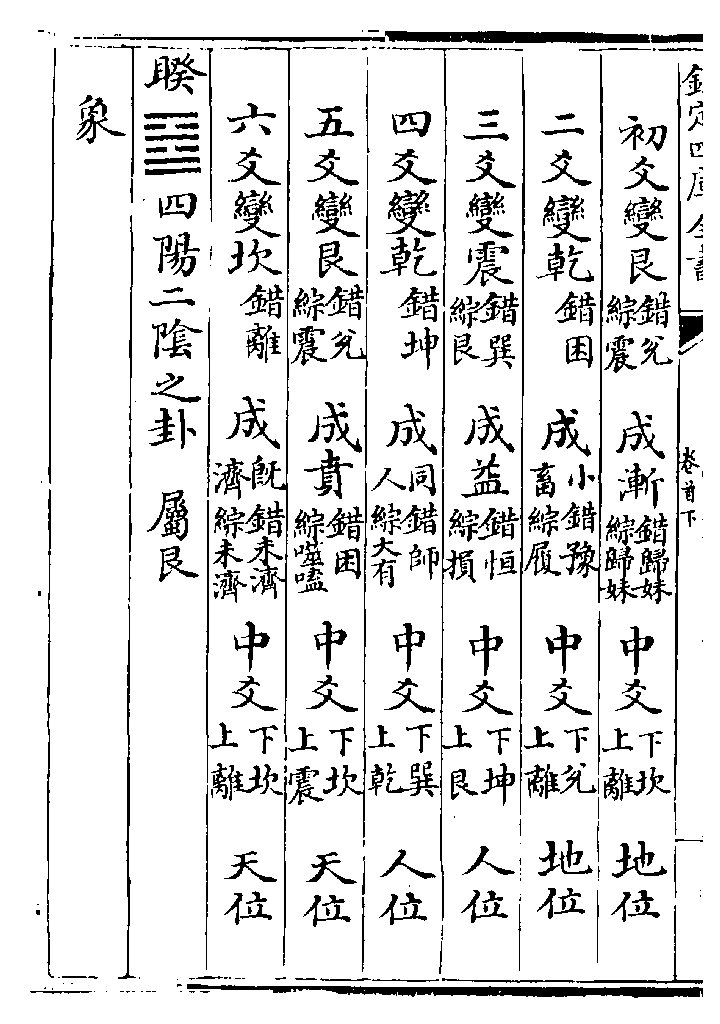 欽定四庫全書
卷首下
初爻變艮錯兊綜震成漸錯歸妹綜歸妹中爻下坎上離地位
二爻變乾錯困成小畜錯豫綜履中爻下兊上離地位
三爻變震錯巽綜艮成益錯恒綜損中爻下坤上艮人位
四爻變乾錯坤成同人錯師綜大有中爻下巽上乾人位
五爻變艮錯兊綜震成賁錯困綜噬嗑中爻下坎上震天位
六爻變坎錯離成既濟錯未濟綜未濟中爻下坎上離天位
睽䷥四陽二陰之卦 屬艮
象